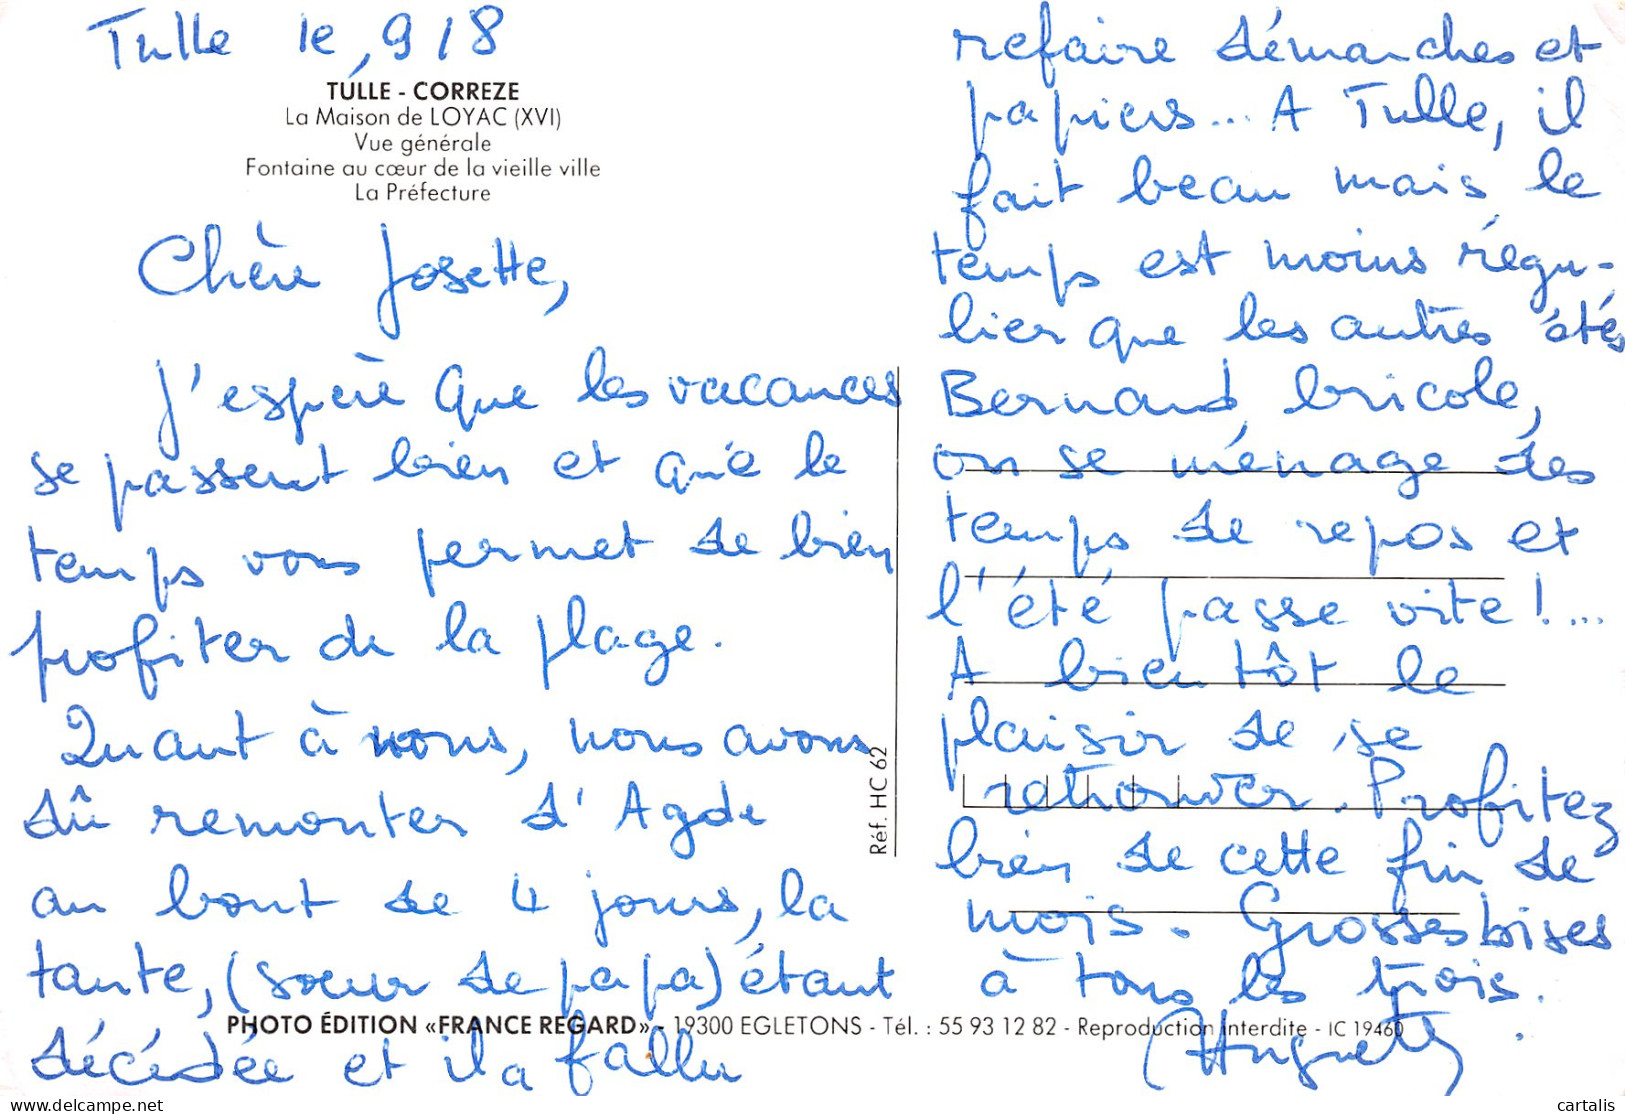 Tulle le, 9/8
TULLE - CORREZE
La Maison de LOYAC (XVI)
Vue générale
Fontaine au cœur de la vieille ville
La Préfecture
Chère Josette,
J'espère que les vacances
se passent bien et que le
temps vous permet de bien
profiter de la plage.
Quant à nous, nous avons
dû remonter d'Agde
au bout de 4 jours, la
tante, (soeur de papa) étant
décédée et il a fallu
refaire démarches et
papiers... A Tulle, il
fait beau mais le
temps est moins régu-
lier que les autres étés
Bernard bricole,
on se ménage des
temps de repos et
l'été passe vite !...
A bientôt le
plaisir de se
retrouver. Profitez
bien de cette fin de
mois. Grosses bises
à tous les trois.
Huguette
Réf. HC 62
PHOTO ÉDITION «FRANCE REGARD» - 19300 EGLETONS - Tél. : 55 93 12 82 - Reproduction interdite - IC 19460
cartalis